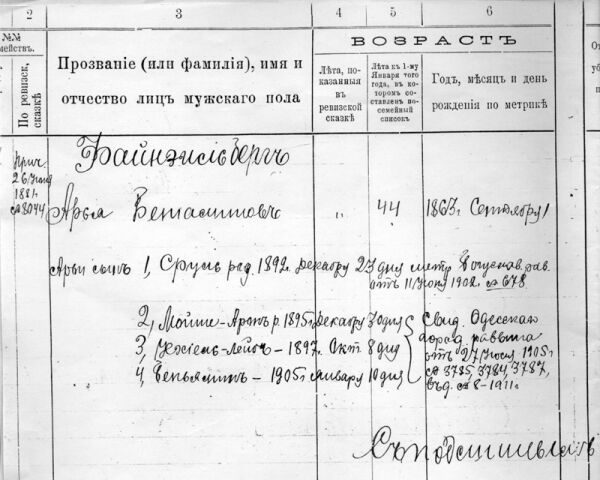 2
3
4
5
6
№№
семействъ.
По ревизск. сказкѣ
Прозваніе (или фамилія), имя и
отчество лицъ мужскаго пола
ВОЗРАСТЪ
Лѣта, по-
казанныя
въ
ревизской
сказкѣ
Лѣта къ 1-му
Января того
года, въ ко-
торомъ со-
ставленъ по-
семейный
списокъ
Годъ, мѣсяцъ и день
рожденія по метрикѣ
Файнзильбергъ
Прич.
26 Іюня
1881.
№ 8044
Арья Беньаминовъ
„
44
1867г. Сентября 1
Арьи сынъ 1, Сруль род. 1892г. Декабря 23 дня метр. Богуслав. рав.
отъ 11 Іюня 1902. № 678
2, Мойше-Аронъ р. 1895г. Декабря 30 дня
3, 1897. Окт. 8 дня
4, Веньяминъ – 1905г. Января 10 дня
Свид. Одесскаго
город. раввина
отъ 27 Іюля 1905г.
№ 3785, 3784, 3787,
№ 8-1911г.
Съ подлиннымъ